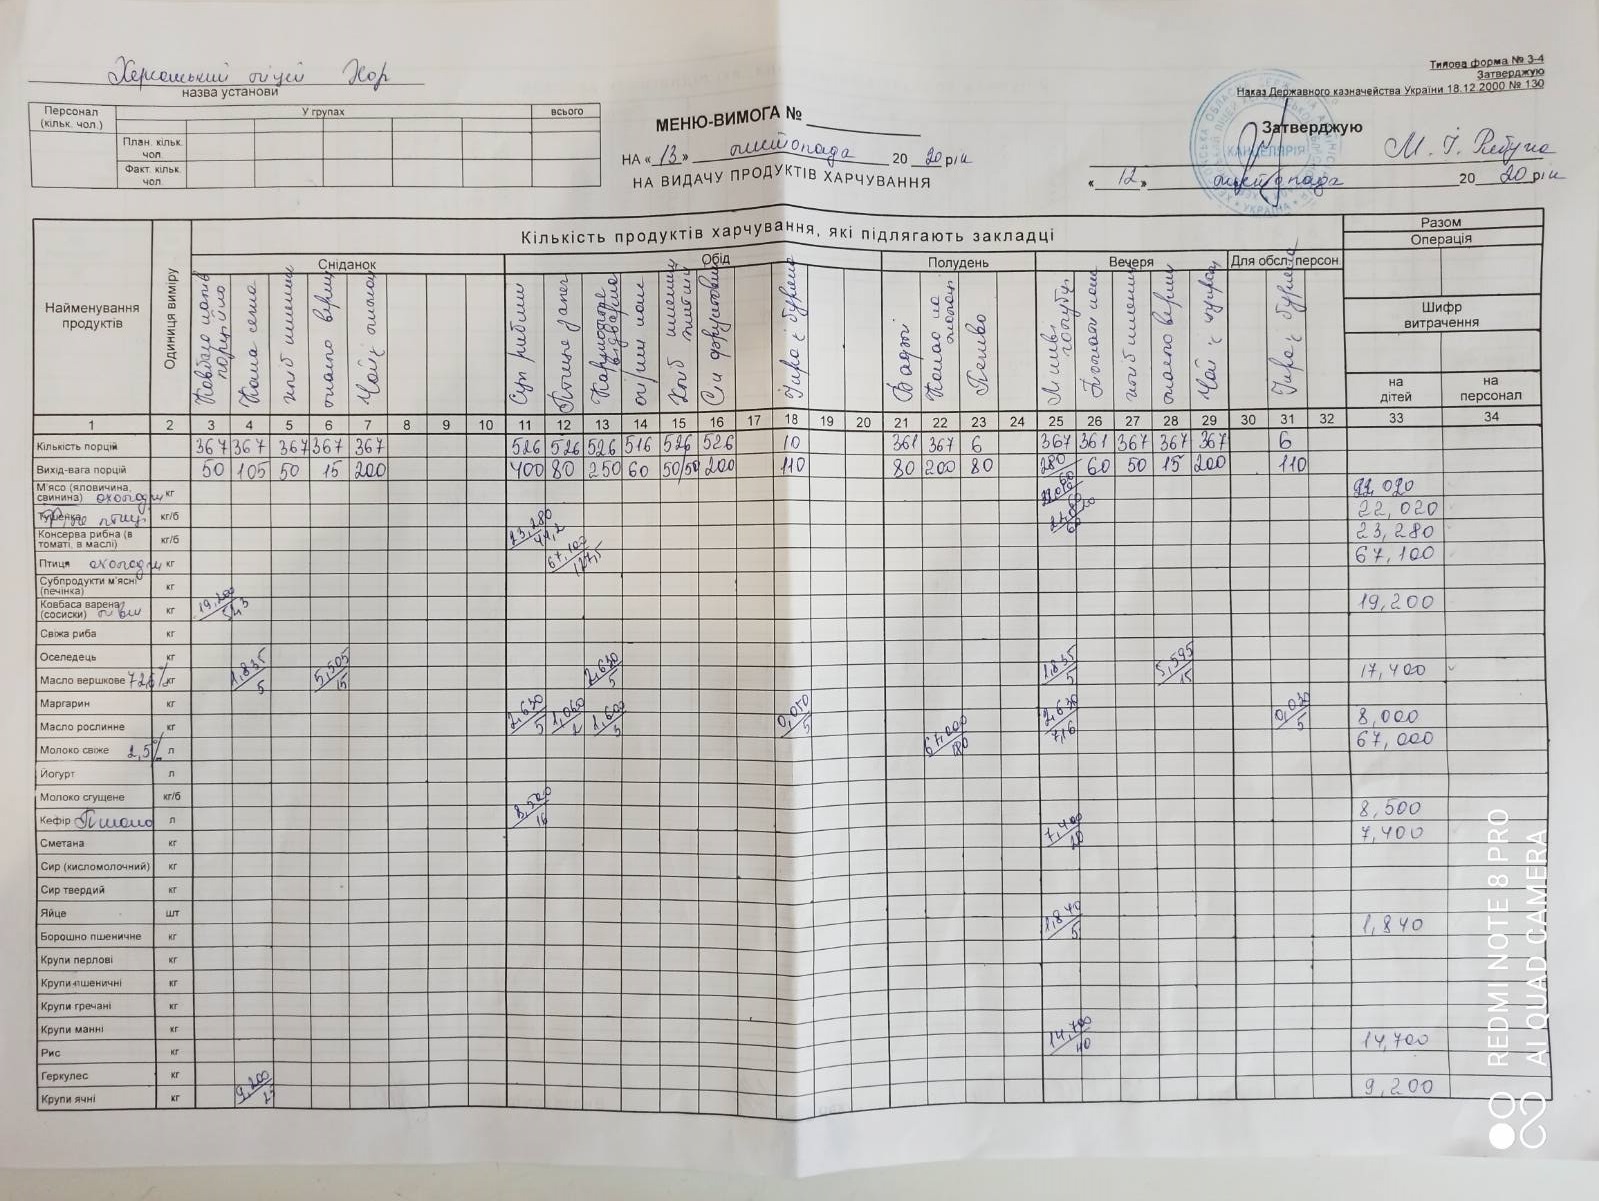 Херсонський ліцей ХОР
назва установи
Типова форма № 3-4
Затверджую
Наказ Державного казначейства України 18.12.2000 № 130
Персонал (кільк. чол.) У групах всього
План. кільк. чол.
Факт. кільк. чол.
МЕНЮ-ВИМОГА №
НА «13» листопада 2020 рік
НА ВИДАЧУ ПРОДУКТІВ ХАРЧУВАННЯ
Затверджую
КАНЦЕЛЯРІЯ
УКРАЇНА
М. І.
«12» листопада 2020 рік
Найменування продуктів
Одиниця виміру
Кількість продуктів харчування, які підлягають закладці
Разом
Операція
Шифр витрачення
на дітей
на персонал
Сніданок Обід Полудень Вечеря Для обсл. персон.
Каша хліб масло Чай Суп рибний Птиця Хліб Какао на молоці Печиво хліб масло Чай з цукром
1 2 3 4 5 6 7 8 9 10 11 12 13 14 15 16 17 18 19 20 21 22 23 24 25 26 27 28 29 30 31 32 33 34
Кількість порцій 367 367 367 367 367 526 526 526 516 526 526 10 361 367 6 367 361 367 367 367 6
Вихід-вага порцій 50 105 50 15 200 400 80 250 60 50/50 200 110 80 200 80 280 60 50 15 200 110
М'ясо (яловичина, свинина) кг 22,020
Тушенка кг/б 22,020
Консерва рибна (в томаті, в маслі) кг/б 23,280 23,280
Птиця кг 67,100 67,100
Субпродукти м'ясні (печінка) кг
Ковбаса варена (сосиски) кг 19,200 19,200
Свіжа риба кг
Оселедець кг
Масло вершкове 72,5% кг 1,835/5 5,505/15 2,630/5 1,835/5 5,595/15 17,400
Маргарин кг
Масло рослинне кг 2,630/5 1,060/2 1,600/3 0,050/5 2,630 0,030/5 8,000
Молоко свіже 2,5% л 67,000/180 67,000
Йогурт л
Молоко сгущене кг/б
Кефір Пшоно л 8,500/16 8,500
Сметана кг 7,400/20 7,400
Сир (кисломолочний) кг
Сир твердий кг
Яйце шт
Борошно пшеничне кг 1,840/5 1,840
Крупи перлові кг
Крупи пшеничні кг
Крупи гречані кг
Крупи манні кг
Рис кг 14,700/40 14,700
Геркулес кг
Крупи ячні кг 9,200/25 9,200
REDMI NOTE 8 PRO
AI QUAD CAMERA